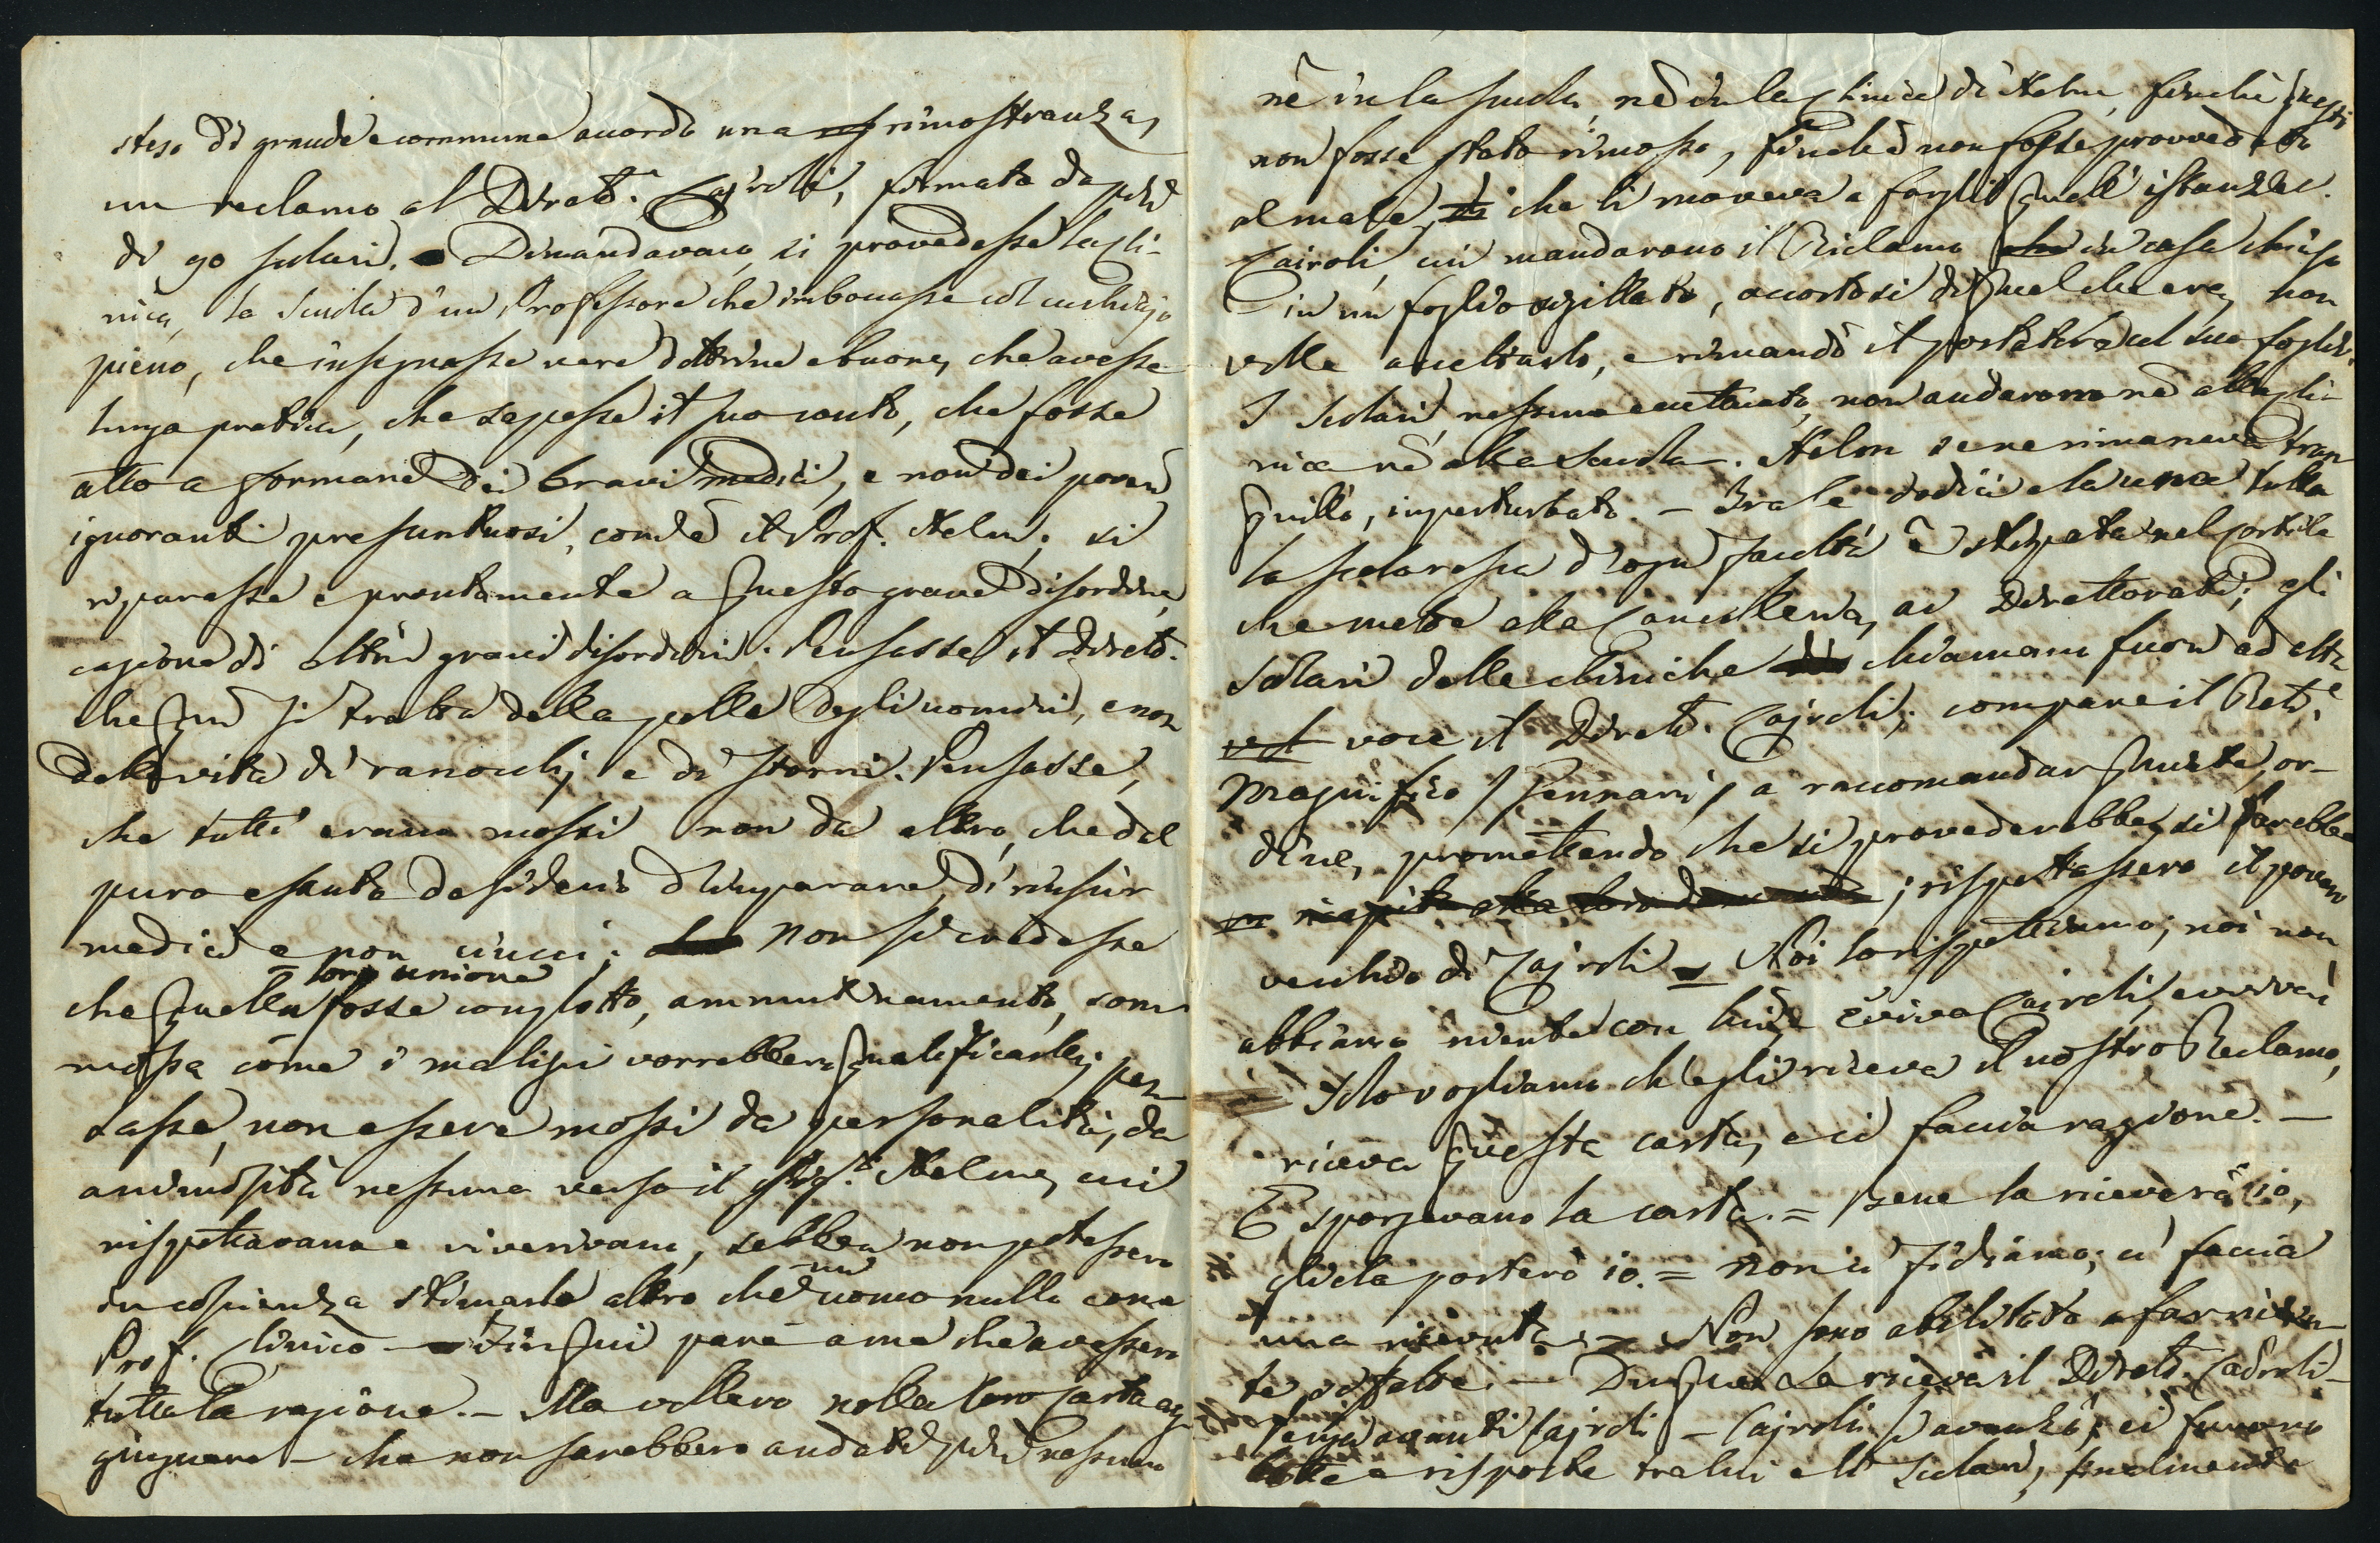 steso di grande e commune accordo una rimostranza,
un reclamo al Dirett.e Cajroli, firmata da più
di 90 scolari. Dimandavano, si provvedesse la Cli-
nica, la Scuola d'un Professore che imboccasse col cucchiajo
pieno, che insegnasse vere dottrine e buone, che avesse
lunga pratica, che sapesse il suo conto, che fosse
atto a formare dei bravi medici, e non dei poveri
ignoranti presuntuosi, com'è il Prof. Helm; si
riparasse e prontamente a questo grave disordine,
cagione di altri gravi disordini. Pensasse il Dirett.
che qui si tratta della pelle degli uomini, e non
della vita di ranocchj e di storni. Pensasse,
che tutti erano mossi non da altro, che dal
puro e santo desiderio d'imparare, di riuscir
medici e non ciucci; non si credesse
che quella loro unione fosse complotto, ammutinamento, som-
mossa come i maligni vorrebbero qualificarla; pen-
sasse, non essere mossi da personalità, da
animosità nessuna verso il Sig.r Helm, cui
rispettavano e riverivano, sebben non potessero
in coscienza stimarlo altro che un uomo nullo come
Prof. Clinico — Fin qui pare a me che avessero
tutta la ragione. — Ma vollero nella loro carta ag-
giugnere — che non sarebbero andati più nessuno
nè in la scuola, nè in la Clinica di Helm, finchè questi
non fosse stato rimosso, finchè non fosse provveduto
al male, che li moveva a fargli quell' istanza.
Cairoli, cui mandarono il Reclamo in casa chiuso
in un foglio sigillato, accortosi di quel che era, non
volle accettarlo, e rimandò il portatore col suo foglio.
I Scolari, nessuno eccettuato, non andarono nè alla Cli-
nica nè alla Scuola. Helm se ne rimaneva tran-
quillo, imperturbato. — Tra le dodici e la una tutta
la scolaresca d'ogni facoltà è stipata nel Cortile
che mette alla Cancelleria, ai Direttorati; gli
scolari delle cliniche chiamano fuori ad alta
voce il Dirett. Cajroli; compare il Rett.e
Magnifico / Gennari / a raccomandar quiete, or-
dine, promettendo che si provederebbe, si farebbe
; rispettassero il povero
vecchio di Cajroli = Noi lo rispettiamo; noi non
abbiamo niente con lui, evviva Cairoli, evviva!
Solo vogliamo ch'egli riceva il nostro Reclamo,
riceva questa carta, e ci faccia ragione. —
E sporgevano la carta. = Bene la riceverò io,
gliela porterò io. = Non ci fidiamo; ci faccia
una ricevuta. = Non sono abilitato a far ricevu-
te siffatte. — Dunque La riceva il Dirett. Cairoli —
Venga avanti Cajroli — Cajroli s'avanzò; ci furono
botte e risposte tra lui e li Scolari, finalmente